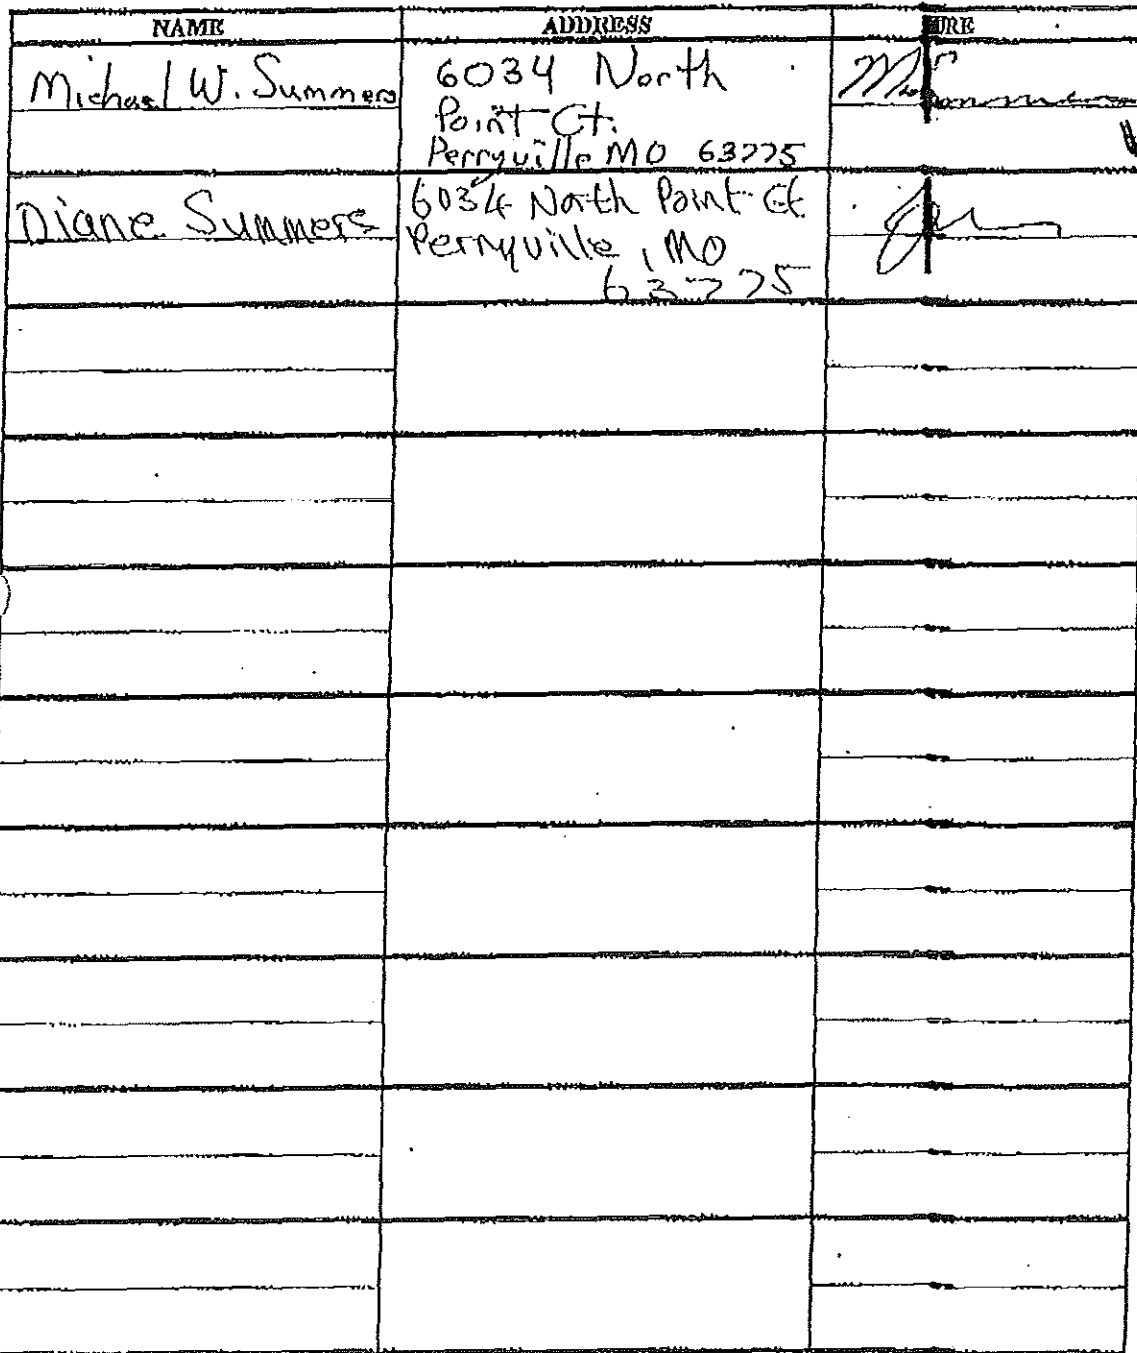 NAME ADDRESS URE
Michael W. Summers 6034 North
Point Ct.
Perryville MO 63775
Diane Summers 6034 North Point Ct
Perryville, MO
63775